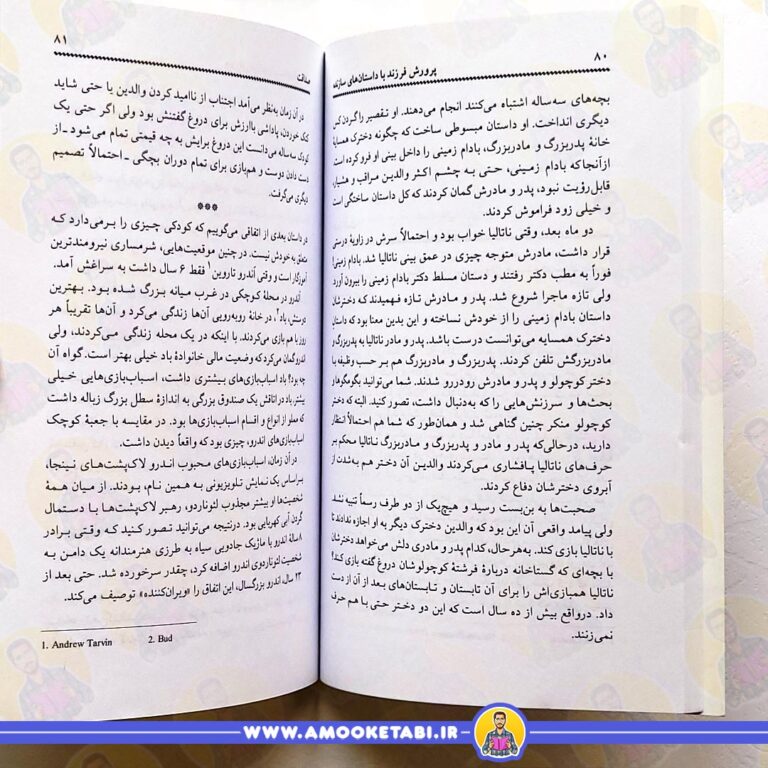 ۸۰
پرورش فرزند با داستان‌های سازنده
بچه‌های سه‌ساله اشتباه می‌کنند انجام می‌دهند. او تقصیر را گردن کس
دیگری انداخت. او داستان مبسوطی ساخت که چگونه دخترک همسایۀ
خانۀ پدربزرگ و مادربزرگ، بادام زمینی را داخل بینی او فرو کرده است.
ازآنجاکه بادام زمینی، حتی به چشم اکثر والدین مراقب و هشیار،
قابل‌رؤیت نبود، پدر و مادرش گمان کردند که کل داستان ساختگی است
و خیلی زود فراموش کردند.
دو ماه بعد، وقتی ناتالیا خواب بود و احتمالاً سرش در زاویۀ درستی
قرار داشت، مادرش متوجه چیزی در عمق بینی ناتالیا شد. بادام زمینی!
فوراً به مطب دکتر رفتند و دستان مسلط دکتر بادام زمینی را بیرون آورد.
ولی تازه ماجرا شروع شد. پدر و مادرش تازه فهمیدند که دخترشان
داستان بادام زمینی را از خودش نساخته و این بدین معنا بود که داستان
دخترک همسایه می‌توانست درست باشد. پدر و مادر ناتالیا به پدربزرگ و
مادربزرگش تلفن کردند. پدربزرگ و مادربزرگ هم بر حسب وظیفه با
دختر کوچولو و پدر و مادرش رودررو شدند. شما می‌توانید بگومگوها و
بحث‌ها و سرزنش‌هایی را که به‌دنبال داشت، تصور کنید. البته که دختر
کوچولو منکر چنین گناهی شد و همان‌طور که شما هم احتمالاً انتظار
دارید، درحالی‌که پدر و مادر و پدربزرگ و مادربزرگ ناتالیا محکم بر
حرف‌های ناتالیا پافشاری می‌کردند والدین آن دختر هم به‌شدت از
آبروی دخترشان دفاع کردند.
صحبت‌ها به بن‌بست رسید و هیچ‌یک از دو طرف رسماً تنبیه نشد.
ولی پیامد واقعی آن این بود که والدین دخترک دیگر به او اجازه ندادند تا
با ناتالیا بازی کند. به‌هرحال، کدام پدر و مادری دلش می‌خواهد دخترشان
با بچه‌ای که گستاخانه دربارۀ فرشتۀ کوچولوشان دروغ گفته بازی کند؟
ناتالیا همبازی‌اش را برای آن تابستان و تابستان‌های بعد از آن از دست
داد. درواقع بیش از ده سال است که این دو دختر حتی با هم حرف
نمی‌زنند.
صداقت
۸۱
در آن زمان به‌نظر می‌آمد اجتناب از ناامید کردن والدین یا حتی شاید
کتک خوردن، پاداشی باارزش برای دروغ گفتنش بود ولی اگر حتی یک
کودک سه‌ساله می‌دانست این دروغ برایش به چه قیمتی تمام می‌شود ـ از
دست دادن دوست و هم‌بازی برای تمام دوران بچگی ـ احتمالاً تصمیم
دیگری می‌گرفت.
***
در داستان بعدی از اتفاقی می‌گوییم که کودکی چیزی را برمی‌دارد که
متعلق به خودش نیست. در چنین موقعیت‌هایی، شرمساری نیرومندترین
آموزگار است و وقتی اَندرو تاروین۱ فقط ۶ سال داشت به سراغش آمد.
اَندرو در محلۀ کوچکی در غرب میانه بزرگ شده بود. بهترین
دوستش، باد۲، در خانۀ روبه‌رویی آن‌ها زندگی می‌کرد و آن‌ها تقریباً هر
روز با هم بازی می‌کردند. با اینکه در یک محله زندگی می‌کردند، ولی
اندرو گمان می‌کرد که وضعیت مالی خانوادۀ باد خیلی بهتر است. گواه آن
چه بود؟ باد اسباب‌بازی‌های بیشتری داشت، اسباب‌بازی‌هایی خیلی
بیشتر. باد در اتاقش یک صندوق بزرگی به اندازۀ سطل بزرگ زباله داشت
که مملو از انواع و اقسام اسباب‌بازی‌ها بود. در مقایسه با جعبۀ کوچک
اسباب‌بازی‌های اندرو، چیزی بود که واقعاً دیدن داشت.
در آن زمان، اسباب‌بازی‌های محبوب اندرو لاک‌پشت‌های نینجا،
براساس یک نمایش تلویزیونی به همین نام، بودند. از میان همۀ
شخصیت‌ها او بیشتر مجذوب لئوناردو، رهبر لاک‌پشت‌ها با دستمال
گردن آبی کهربایی بود. درنتیجه می‌توانید تصور کنید که وقتی برادر
۸ سالۀ اندرو با ماژیک جادویی سیاه به طرزی هنرمندانه یک دامن به
شخصیت لئوناردوی اندرو اضافه کرد، چقدر سرخورده شد. حتی بعد از
۲۳ سال، اندرو بزرگسال، این اتفاق را «ویران‌کننده» توصیف می‌کند.
1. Andrew Tarvin 2. Bud
WWW.AMOOKETABI.IR